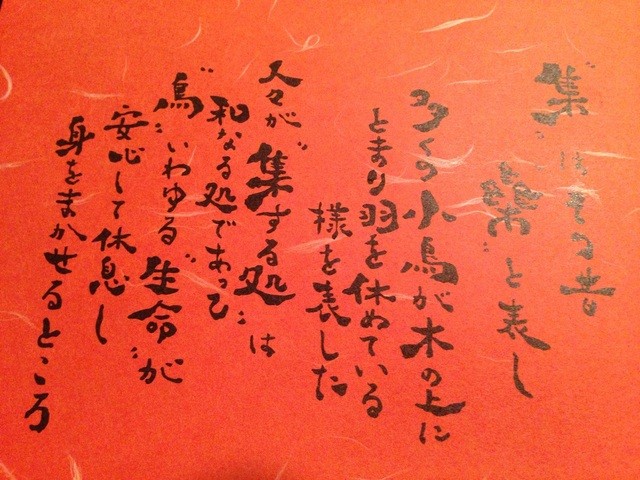 〝集〟は昔
〝雧〟と表し
多くの小鳥が木の上に
とまり羽を休めている
様を表した
人々が〝集する処〟は
和なる処であって
〝鳥〟いわゆる〝生命〟が
安心して休息し
身をまかせるところ